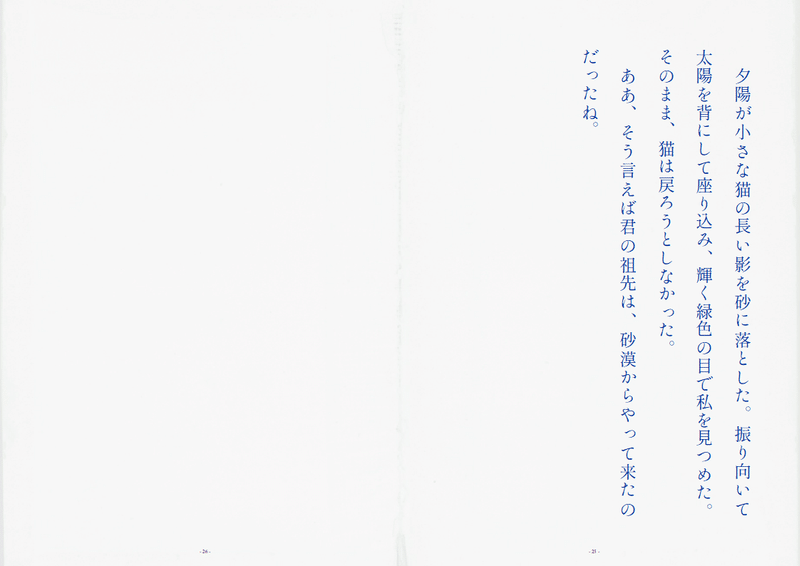 夕陽が小さな猫の長い影を砂に落とした。振り向いて
太陽を背にして座り込み、輝く緑色の目で私を見つめた。
そのまま、猫は戻ろうとしなかった。
ああ、そう言えば君の祖先は、砂漠からやって来たの
だったね。
- 25 -
- 26 -